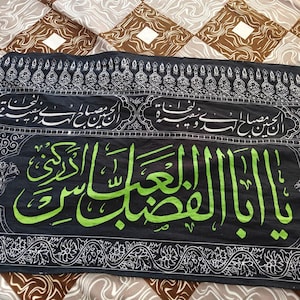 ان الحسین مصباح الهدی و سفینة النجاة ان الحسین مصباح الهدی و سفینة النجاة
یا اباالفضل العباس ادرکنی